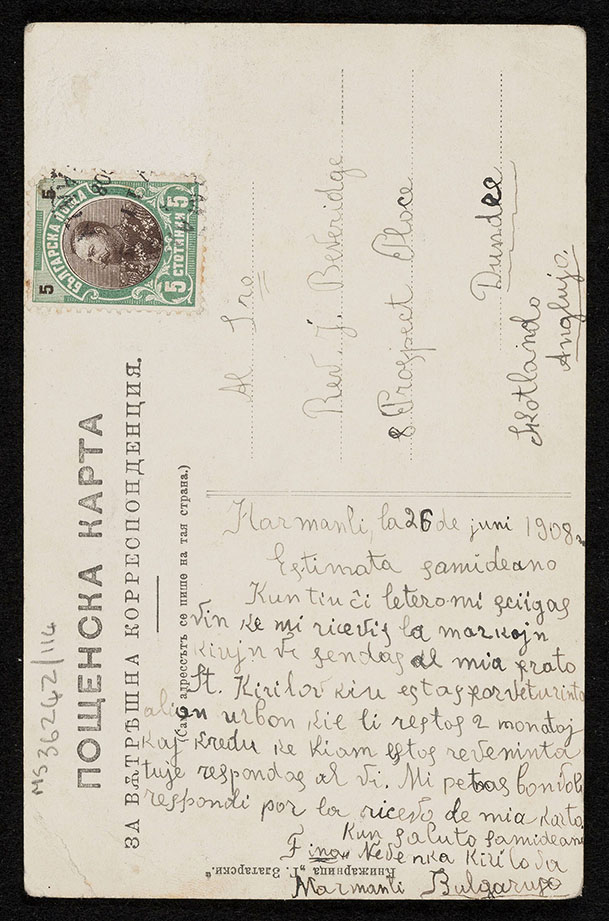 ПОЩЕНСКА КАРТА
ЗА ВѪТРѢШНА КОРРЕСПОНДЕНЦИЯ.
(Само адрессътъ се пише на тая страна.)
БЪЛГАРСКА ПОЩА
5 СТОТИНКИ 5
5 5
Al Sro
Rev. J. Beveridge
8 Prospect Place
Dundee
Skotlando
Anglujo
Harmanli, la 26 de juni 1908
Estimata samideano
Kun tiu ĉi letero mi sciigas
vin ke mi ricevis la markojn
kiujn vi sendas al mia frato
St. Kirilov kiu estas forveturinta
alian urbon kie li restos 2 monatoj
kaj kredu ke kiam estos reveninta
tuje respondos al vi. Mi petas bonvoli
respondi por la ricevo de mia karto.
Kun saluto samideana
Fino Nedenka Kirilova
Harmanli Bulgarujo
Книжарница „Г. Златарски.“
MS 36242/114